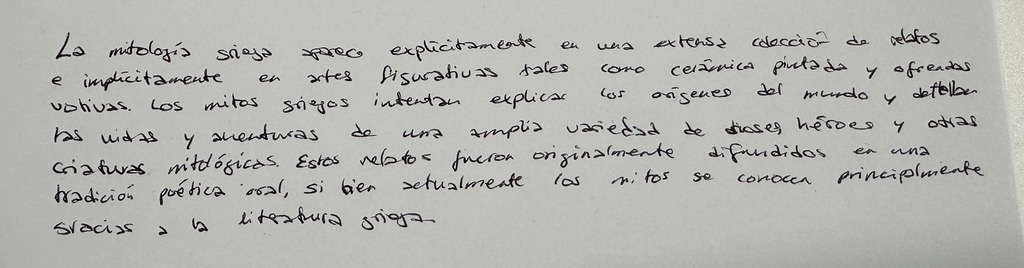 La mitología griega aparece explícitamente en una extensa colección de relatos
e implícitamente en artes figurativas tales como cerámica pintada y ofrendas
votivas. Los mitos griegos intentan explicar los orígenes del mundo y detallan
las vidas y aventuras de una amplia variedad de dioses, héroes y otras
criaturas mitológicas. Estos relatos fueron originalmente difundidos en una
tradición poética oral, si bien actualmente los mitos se conocen principalmente
gracias a la literatura griega.